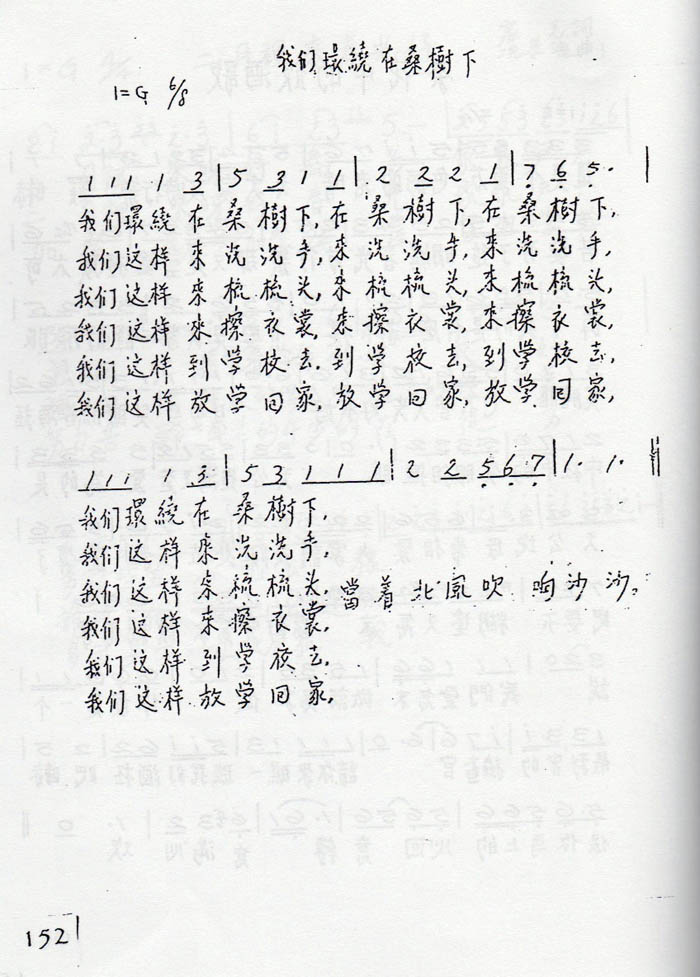 我们環繞在桑樹下
1=G 6/8
1 1 1 1 3 | 5 3 1 1 | 2 2 2 1 | 7 6 5· |
我们環繞在桑樹下,在桑樹下,在桑樹下,
我们这样来洗洗手,来洗洗手,来洗洗手,
我们这样来梳梳头,来梳梳头,来梳梳头,
我们这样來擦衣裳,来擦衣裳,来擦衣裳,
我们这样到学校去,到学校去,到学校去,
我们这样放学回家,放学回家,放学回家,
1 1 1 1 3 | 5 3 1 1 1 | 2 2 5 6 7 | 1· 1· ‖
我们環繞在桑樹下,
我们这样来洗洗手,
我们这样来梳梳头,當着北風吹响沙沙。
我们这样来擦衣裳,
我们这样到学校去,
我们这样放学回家,
152